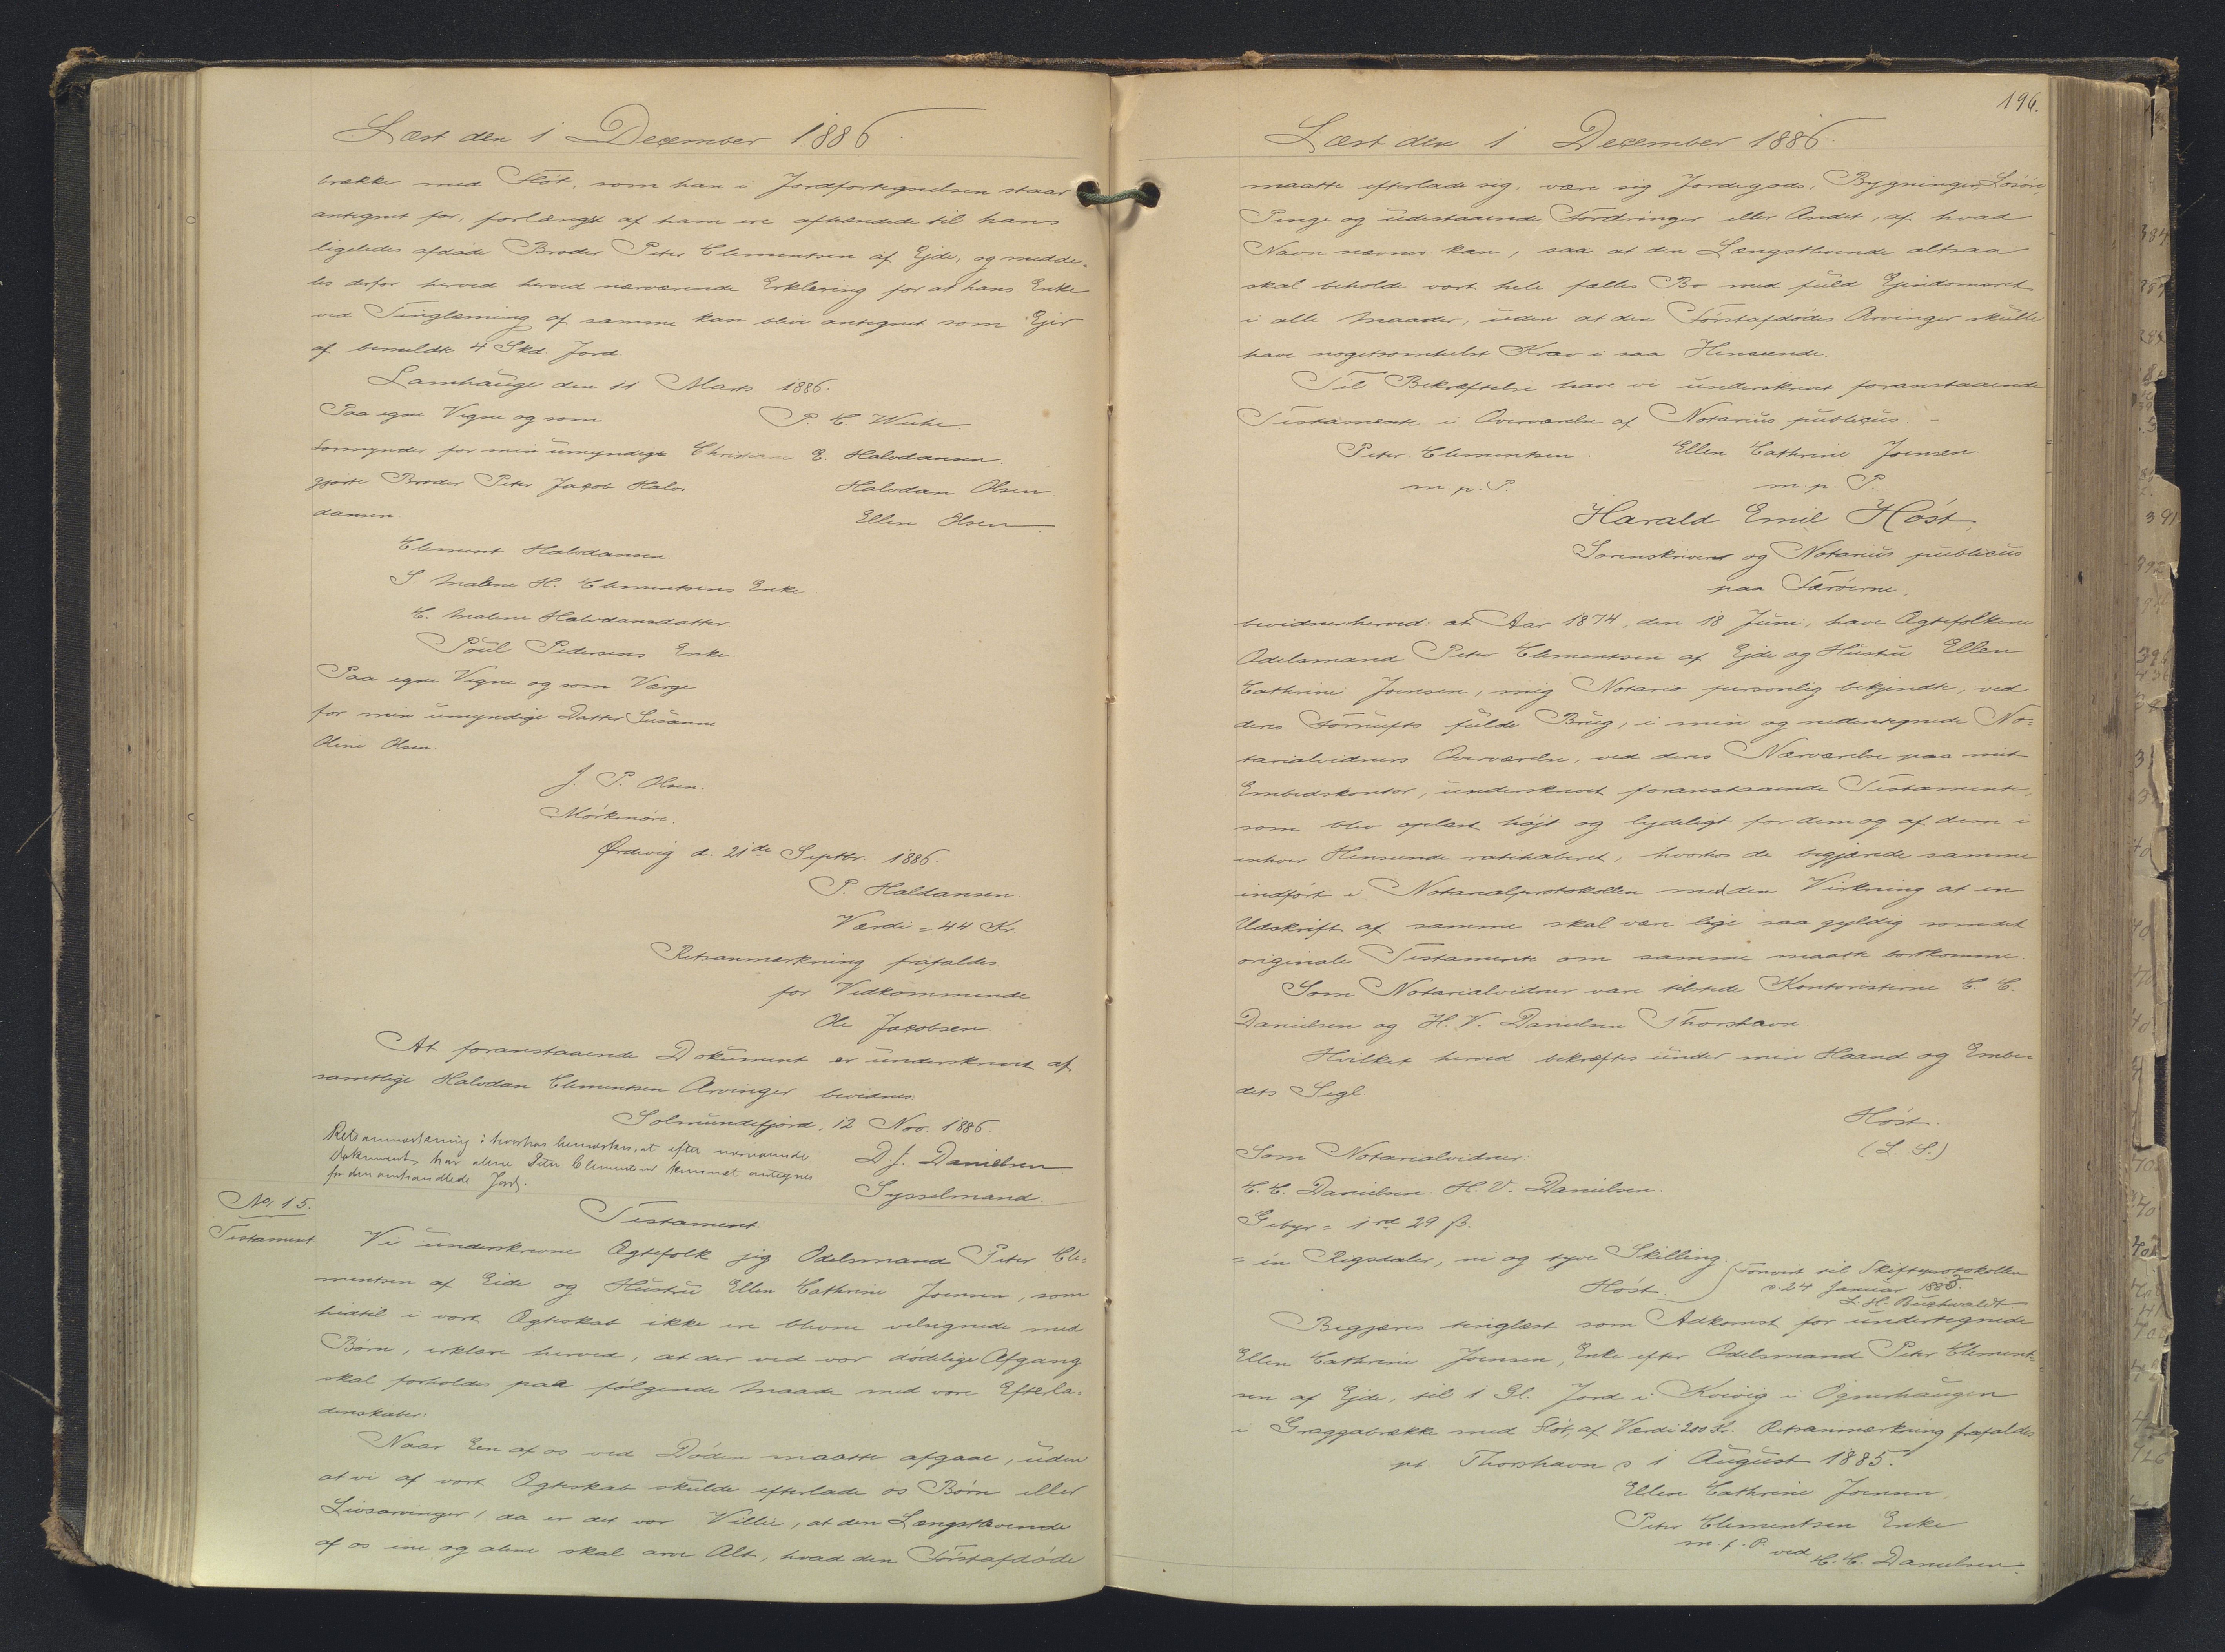 Læst den 1 December 1886.
brække med Flöt, som han i Jordfortegnelsen staar
antegnet for, forlængst af ham ere afhændede til hans
ligeledes afdøde Broder Peter Clementsen af Ejde, og medde-
les derfor herved herved nærværende Erklæring for at hans Enke
ved Tinglæsning af samme kan blive antegnet som Ejer
af bemeldte 4 Skd. Jord.
Lamhauge den 11 Marts 1886.
Paa egne Vegne og som P. C. Weihe.
Formynder for min umyndig- Christiane E. Halvdansen.
gjorte Broder Peter Jacob Halv- Halvdan Olsen
dansen Ellen Olsen
Clement Halvdansen
S Malene H. Clementsens Enke.
C. Malene Halvdansdatter
Poul Pedersens Enke.
Paa egne Vegne og som Værge
for min umyndige Datter Susanne
Oline Olsen.
J. P. Olsen.
Mørkenøre.
Ørdevig d. 21de Septbr. 1886.
P. Haldansen.
Værdi = 44 Kr.
Retsanmærkning frafaldes
for Vedkommende
Ole Jacobsen
At foranstaaende Dokument er underskrevet af
samtlige Halvdan Clementsen Arvinger bevidnes.
Solmundefjord, 12 Nov. 1886.
D. J. Danielsen
Sysselmand.
Retsanmærkning: hvorhos bemærkes, at efter nærværende
Dokument har alene Peter Clementsen kunnet antegnes
for den omhandlede Jord.
No. 15.
Testament
Testament.
Vi underskrevne Ægtefolk jeg Odelsmand Peter Cle-
mentsen af Eide og Hustru Ellen Cathrine Joensen, som
hidtil i vort Ægteskab ikke ere blevne velsignede med
Børn, erklære herved, at der ved vor dødelige Afgang
skal forholdes paa følgende Maade med vore Efterla-
denskaber:
Naar Een af os ved Døden maatte afgaae, uden
at vi af vort Ægteskab skulde efterlade os Børn eller
Livsarvinger, da er det vor Villie, at den Længstlevende
af os ene og alene skal arve Alt, hvad den Førstafdøde
196.
Læst den 1 December 1886.
maatte efterlade sig, være sig Jordegods, Bygninger, Løsøre,
Penge og udestaaende Fordringer eller Andet, af hvad
Navn nævnes kan, saa at den Længstlevende altsaa
skal beholde vort hele fælles Bo med fuld Ejendomsret
i alle Maader, uden at den Førstafdødes Arvinger skulle
have nogetsomhelst Krav i saa Henseende.
Til Bekræftelse have vi underskrevet foranstaaende
Testamente i Overværelse af Notarius publicus. -
Peter Clementsen. Ellen Cathrine Joensen
m. p. P. m. p. P.
Harald Emil Höst,
Sorenskriver og Notarius publicus
paa Færøerne,
bevidner herved: at Aar 1874, den 18 Juni, have Ægtefolkene
Odelsmand Peter Clementsen af Ejde og Hustru Ellen
Cathrine Joensen, mig Notario personlig bekjendte, ved
deres Fornufts fulde Brug, i min og nedentegnede No-
tarialvidners Overværelse, ved deres Nærværelse paa mit
Embedskontor, underskrevet foranstaaende Testamente,
som blev oplæst højt og lydeligt for dem og af dem i
enhver Henseende ratihaberet, hvorhos de begjærede samme
indført i Notarialprotokollen med den Virkning at en
Udskrift af samme skal være lige saa gyldig som det
originale Testamente om samme maatte bortkomme.
Som Notarialvidner vare tilstede Kontoristerne C. C.
Danielsen og H. V. Danielsen Thorshavn.
Hvilket herved bekræftes under min Haand og Embe-
dets Segl.
Höst.
(L. S.)
Som Notarialvidner:
C. C. Danielsen. H. V. Danielsen.
Gebyr = 1 rd 29 ß.
= en Rigsdaler, ni og tyve Skilling.
Höst.
Forevist til Skifteprotokollen
d 24 Januar 1885.
L. H. Buchwaldt
Begjæres tinglæst som Adkomst for undertegnede
Ellen Cathrine Joensen, Enke efter Odelsmand Peter Clement-
sen af Ejde, til 1 Gl. Jord i Kvivig i Ognerhaugen
i Graggabrække med Flöt, af Værdi 200 Kr. Retsanmærkning frafaldes
pt. Thorshavn d 1 August 1885.
Ellen Cathrine Joensen,
Peter Clementsen Enke
m. f. P. ved C. C. Danielsen.